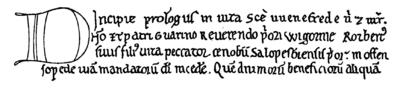 Incipit prologus in vita Sce Wenefrede v. z mr.
Dno z patri Guarino Reverendo pori Wigornie Rotbert
suus filius vita peccator cenobii Salopesbiensis por m offen
so pede viā mandatorū di incede. Que dn morū beneficiorū aliquā